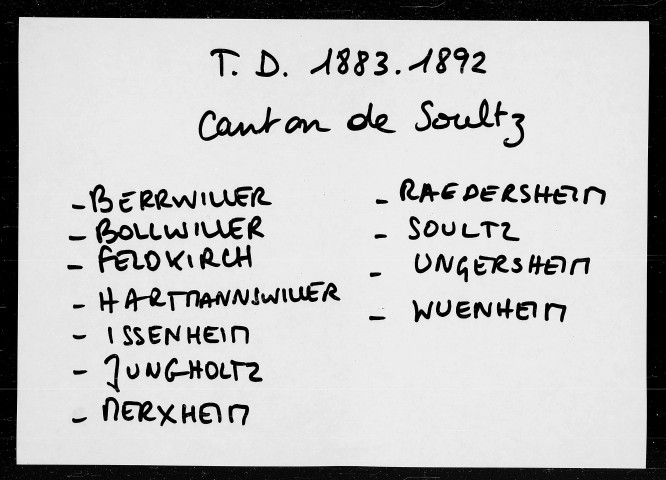 T. D. 1883.1892
Canton de Soultz
- BERRWILLER
- BOLLWILLER
- FELDKIRCH
- HARTMANNSWILLER
- ISSENHEIM
- JUNGHOLTZ
- MERXHEIM
- RAEDERSHEIM
- SOULTZ
- UNGERSHEIM
- WUENHEIM